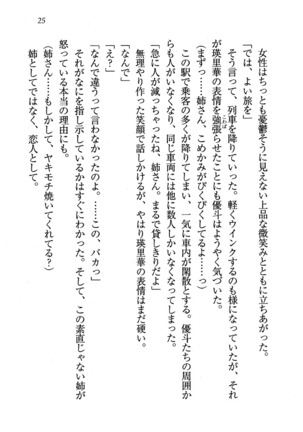 25
女性はちっとも憂鬱そうに見えない上品な微笑みとともに立ちあがった。
「では、よい旅を」
そう言って、列車を降りていった。軽くウインクするのも様になっていたが、それ
が瑛里華の表情を強張らせたことにも優斗はようやく気づいた。
(まずっ……姉さん、こめかみがぴくぴくしてるよ……っ)
この駅で乗客の多くが降りてしまい、一気に車内が閑散とする。優斗たちの周囲か
らも人がいなくなり、同じ車両には他に数人しかいなくなってしまった。
「急に人が減っちゃったね、姉さん。まるで貸しきりだよ」
無理やり作った笑顔で話しかけるが、やはり瑛里華の表情はまだ硬い。
「なんで」
「え？」
「なんで違うって言わなかったのよ。……この、バカっ」
それがなにを指し示しているかはすぐにわかった。そして、この素直じゃない姉が
怒っている本当の理由にも。
(姉さん……もしかして、ヤキモチ焼いてくれてる？)
姉としてではなく、恋人として。